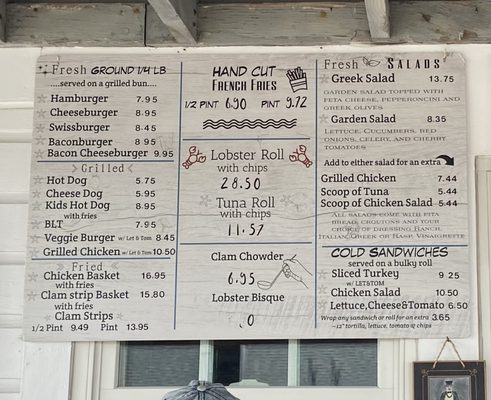 Fresh GROUND 1/4 LB
....served on a grilled bun....
Hamburger 7.95
Cheeseburger 8.95
Swissburger 8.45
Baconburger 8.95
Bacon Cheeseburger 9.95
Grilled
Hot Dog 5.75
Cheese Dog 5.95
Kids Hot Dog 8.95
with fries
BLT 7.95
Veggie Burger w/ Let & Tom 8.45
Grilled Chicken w/ Let & Tom 10.50
Fried
Chicken Basket 16.95
with fries
Clam strip Basket 15.80
with fries
Clam Strips
1/2 Pint 9.49 Pint 13.95
HAND CUT
FRENCH FRIES
1/2 PINT 6.90 PINT 9.72
Lobster Roll
with chips
28.50
Tuna Roll
with chips
11.57
Clam Chowder
6.95
Lobster Bisque
0
Fresh SALADS
Greek Salad 13.75
GARDEN SALAD TOPPED WITH
FETA CHEESE, PEPPERONCINI AND
GREEK OLIVES
Garden Salad 8.35
LETTUCE, CUCUMBERS, RED
ONIONS, CELERY, AND CHERRY
TOMATOES
Add to either salad for an extra
Grilled Chicken 7.44
Scoop of Tuna 5.44
Scoop of Chicken Salad 5.44
ALL SALADS COME WITH PITA
BREAD, CROUTONS AND YOUR
CHOICE OF DRESSING RANCH,
ITALIAN, GREEK OR RASP. VINAIGRETTE
COLD SANDWICHES
served on a bulky roll
Sliced Turkey 9 25
w/ LET&TOM
Chicken Salad 10.50
Lettuce,Cheese&Tomato 6.50
Wrap any sandwich or roll for an extra 3.65
~12" tortilla, lettuce, tomato & chips